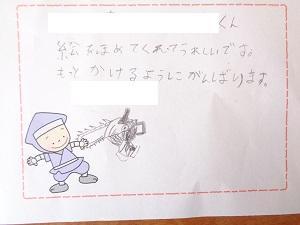 くん
絵をほめてくれてうれしいです。
もっとかけるようにがんばります。